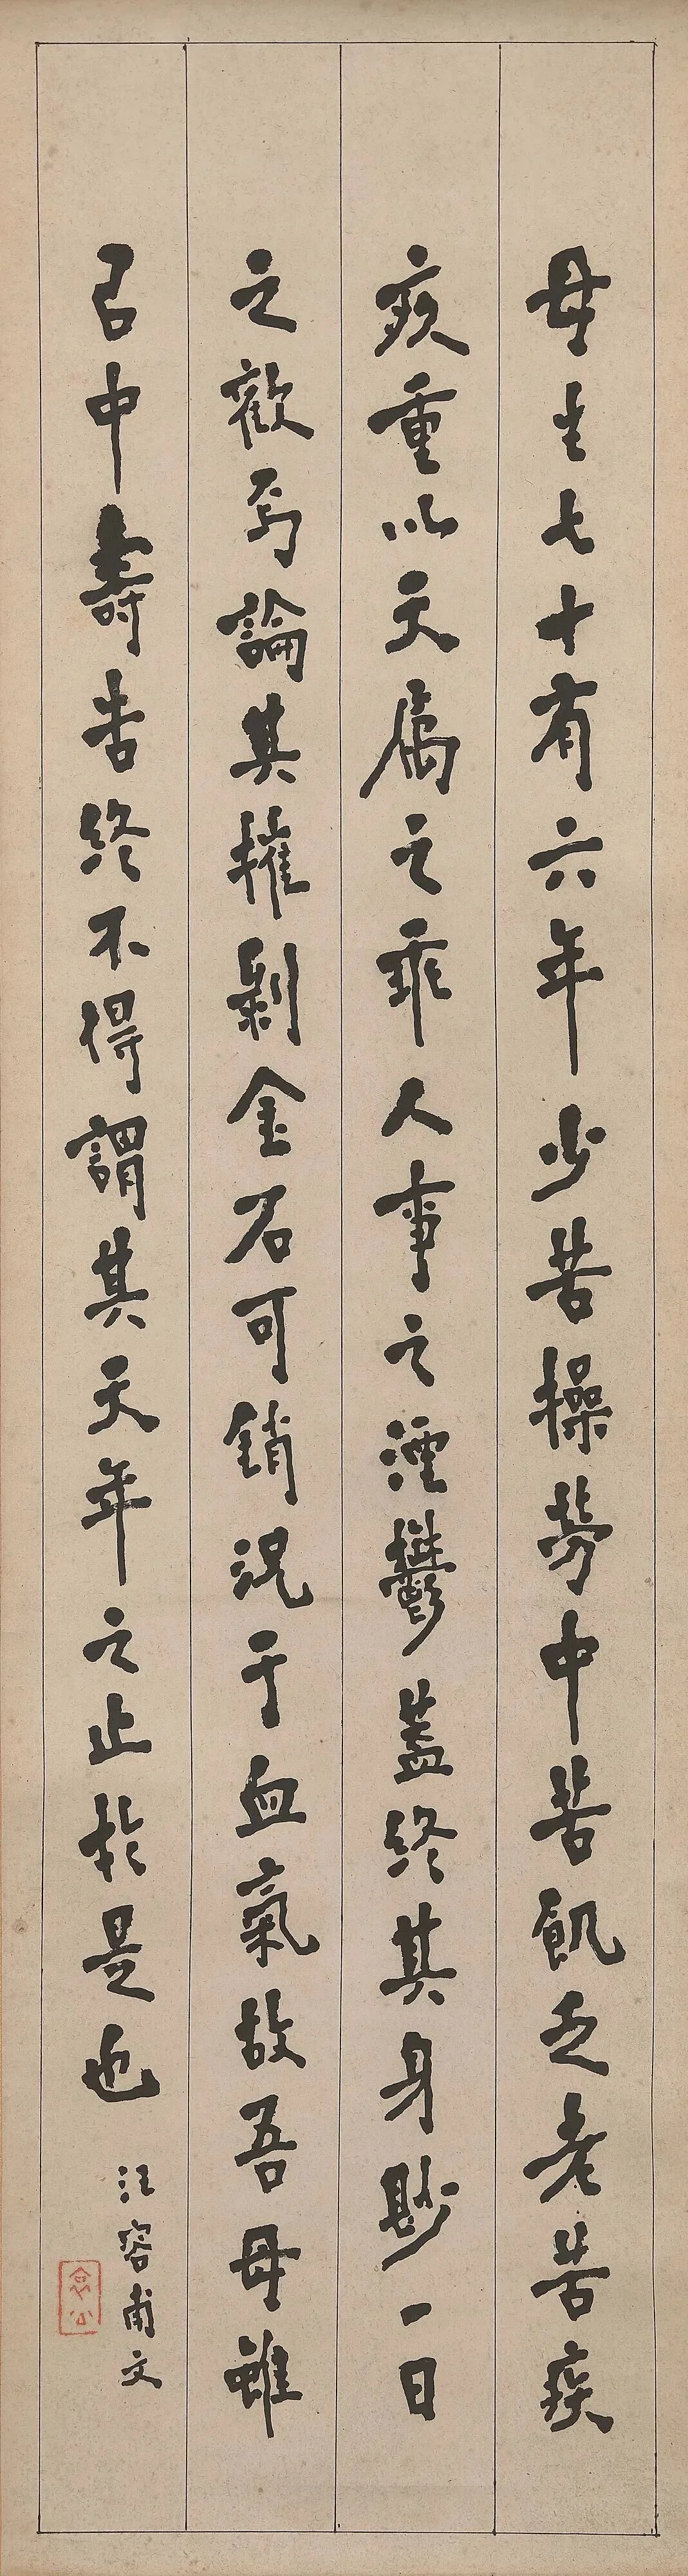 母生七十有六年少苦操勞中苦飢乏老苦疾
疚重以天屬之乖人事之湮鬱蓋終其身尠一日
之歡焉論其摧剝金石可銷況于血氣故吾母雖
以中壽告終不得謂其天年之止於是也
汪容甫文